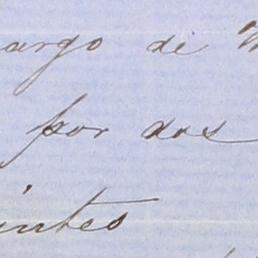 argo de
por dos
intes